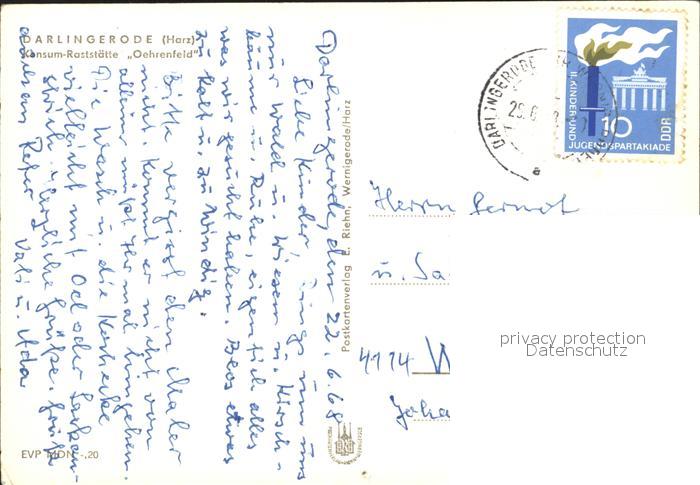 DARLINGERODE (Harz)
Konsum-Raststätte „Oehrenfeld"
Darlingerode, den 22.6.68
Liebe Kinder! Rings um uns
nur Wald u. Wiesen u. Kirsch-
bäume u. Ruhe, eigentlich alles
was wir gesucht haben. Blos etwas
zu kalt u. zu windig.
Bitte vergisst den Maler
nicht. Kommt er nicht von
allein müsst Ihr mal hingehen.
Die Wasch u. die Kochecke
vielleicht mit Od oder Sockel
strich. Herzliche Grüße. Grüße
an Peter Vati u.
EVP MDN -,20
Postkartenverlag E. Riehn, Wernigerode/Harz
DARLINGERODE
II. KINDER UND
JUGENDSPARTAKIADE
10
DDR
Herrn Bernot
u. Sa
4114 W
Joha
privacy protection
Datenschutz